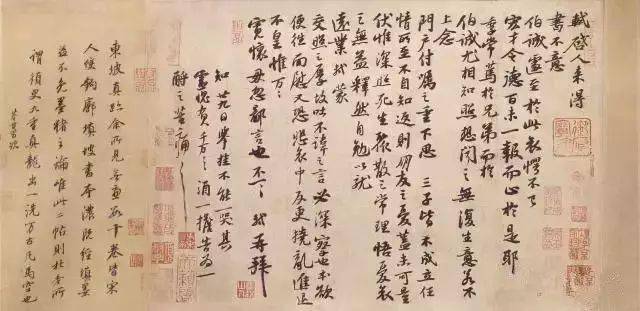 軾啟人來得
書不意
伯誠遽至於此哀愕不已
宏才令德百未一報而止於是耶
季常篤於兄弟而於
伯誠尤相知照想聞之無復生意若不
上念
門戶付囑之重下思三子皆不成立任
情所至不自知返則朋友之憂蓋未可量
伏惟深照死生聚散之常理悟憂哀
之無益釋然自勉以就
遠業軾蒙
交照之厚故吐不諱之言必深察也本欲
便往面慰又恐悲哀中反更撓亂進退
不皇惟萬萬
寬懷毋忽鄙言也不一一軾再拜
知廿九日舉掛不能一哭其
靈愧負千萬千萬酒一擔告為一
酹之苦痛苦痛
東坡真跡余所見無慮數十卷皆宋
人雙鉤廓填坡書本濃既經填墨
蓋不免墨豬之論唯此二帖則杜老所
謂須臾九重真龍出一洗萬古凡馬空也
董其昌題